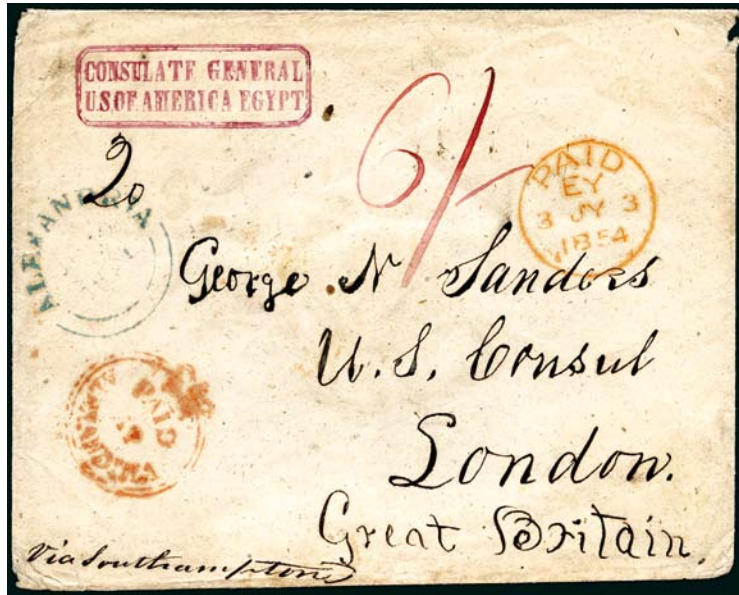 CONSULATE GENERAL
US OF AMERICA EGYPT
6/-
20
PAID
EY
3 JY 3
1854
ALEXANDRIA
George N Sanders
U.S. Consul
London.
Great Britain.
PAID
ALEXANDRIA
Via Southampton